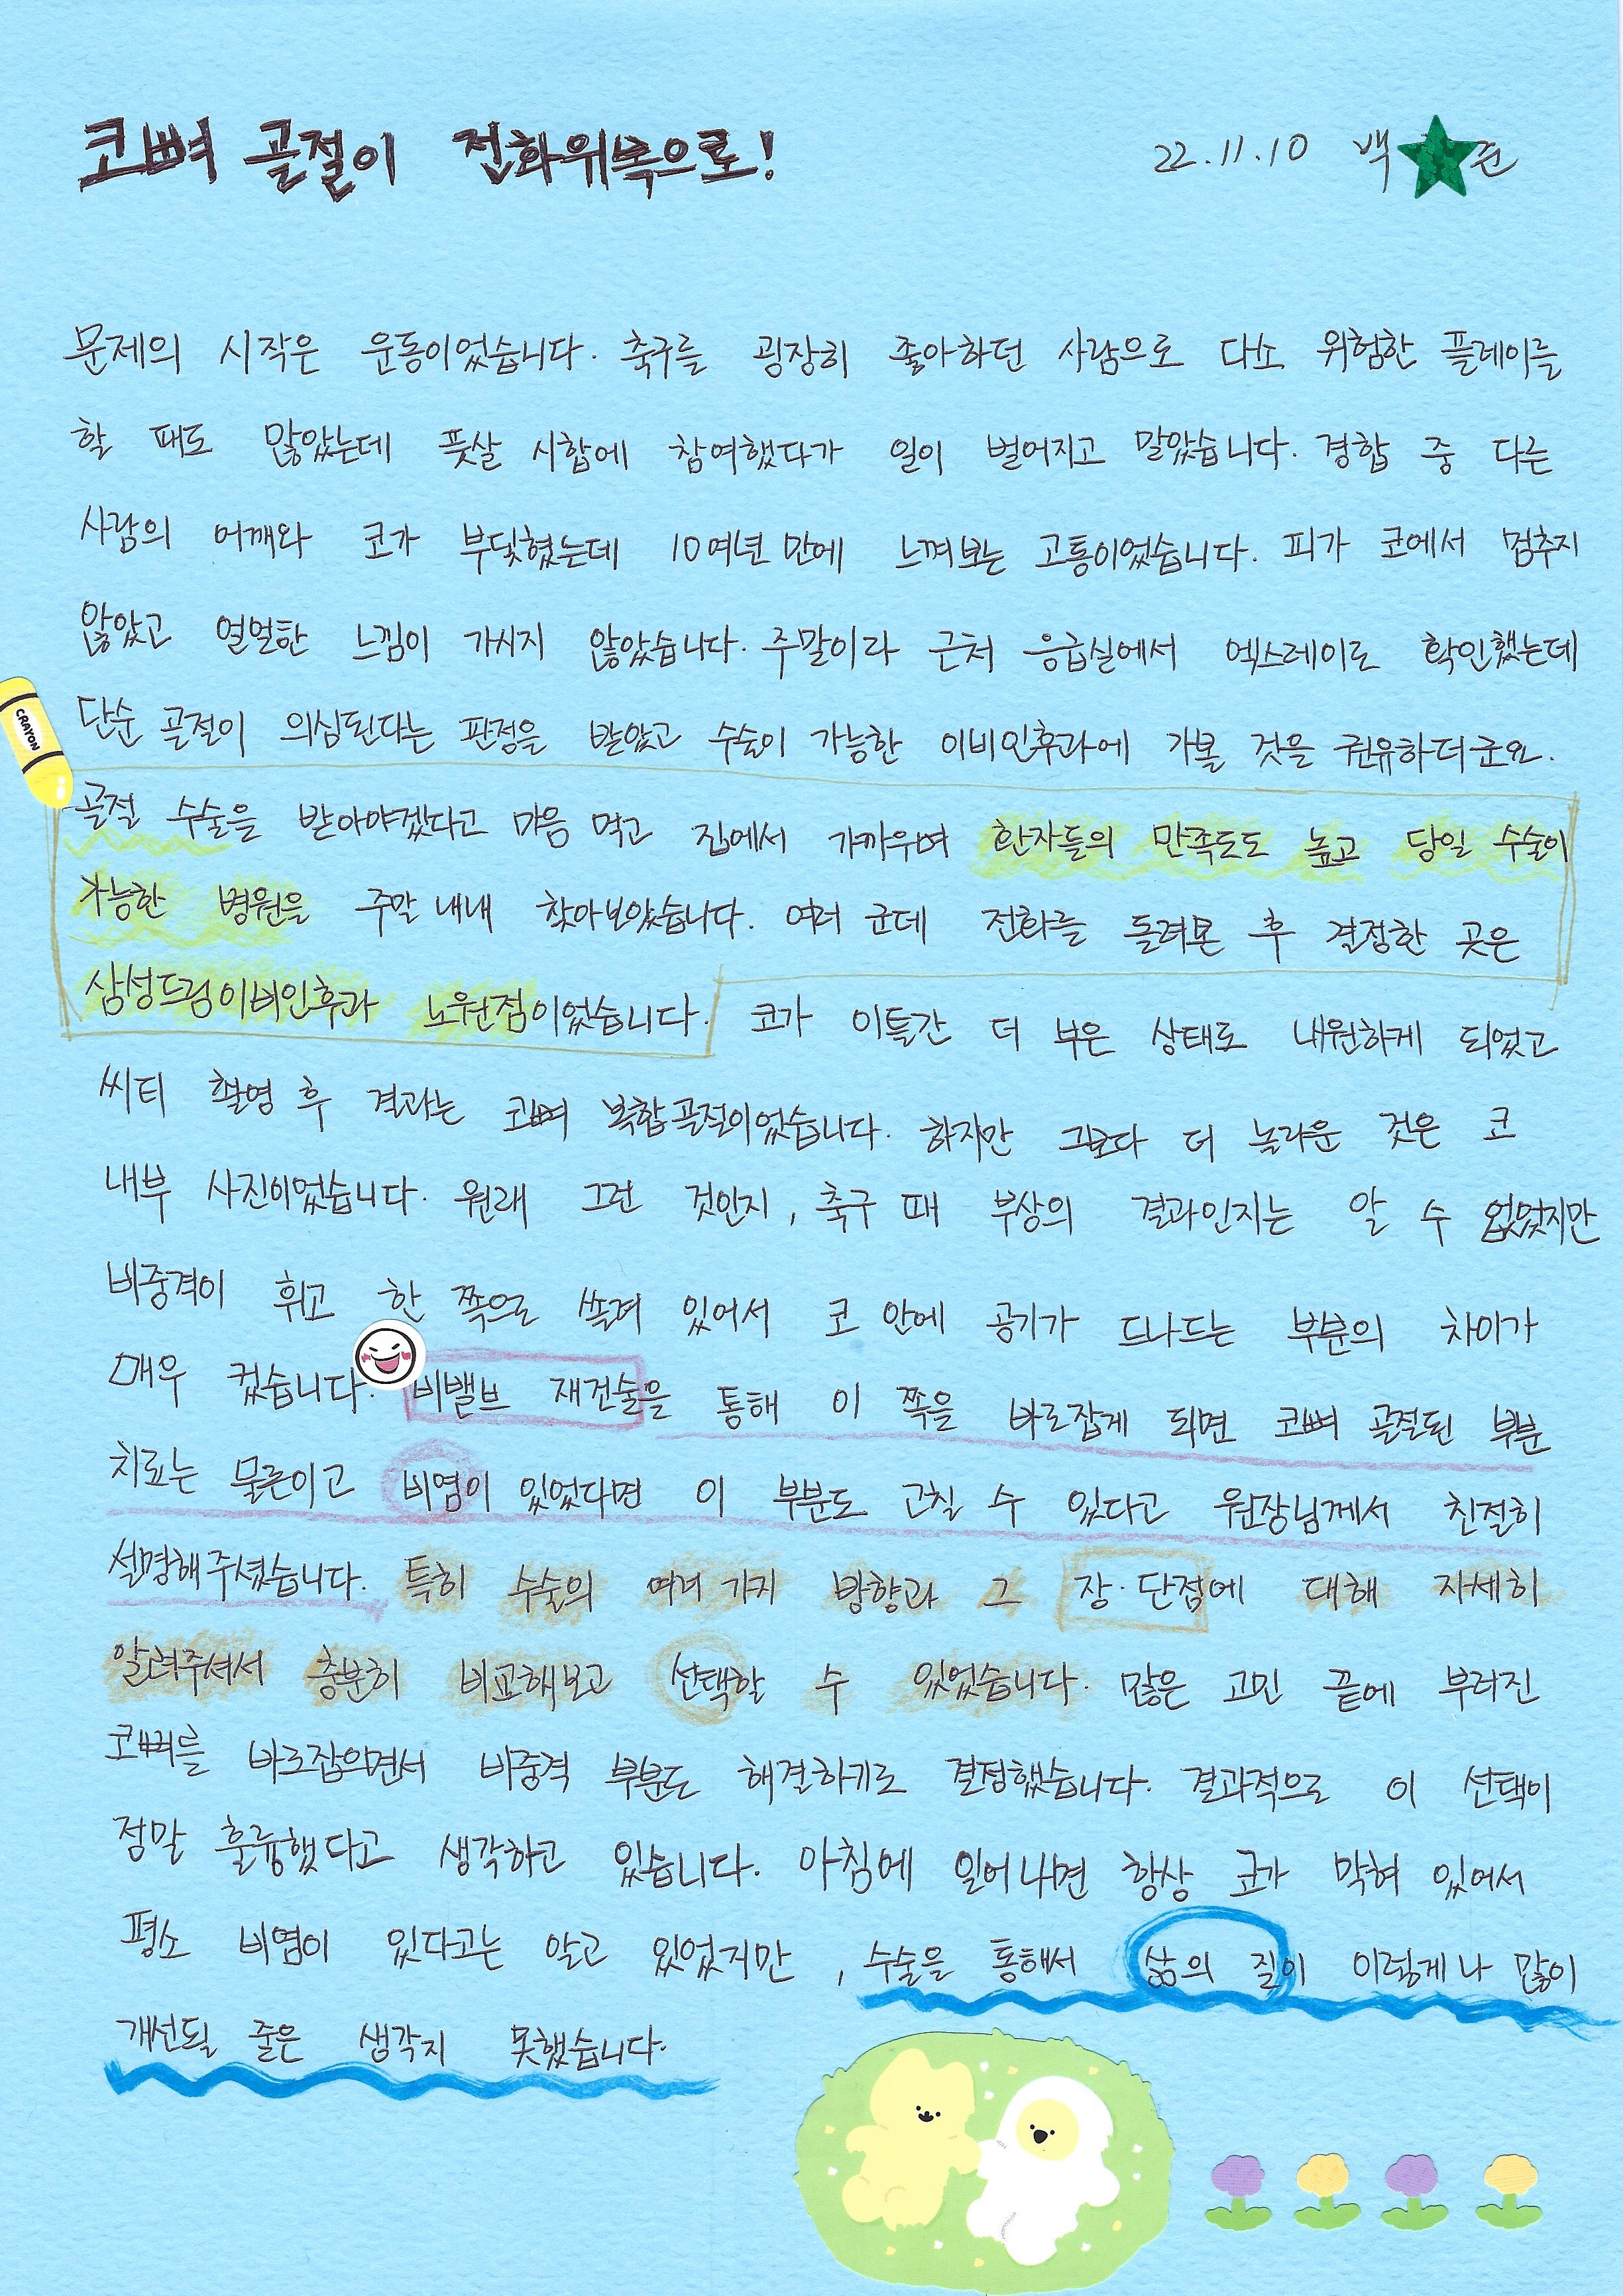 코뼈 골절이 전화위복으로!
22.11.10 백 준
문제의 시작은 운동이었습니다. 축구를 굉장히 좋아하던 사람으로 다소 위험한 플레이를
할 때도 많았는데 풋살 시합에 참여했다가 일이 벌어지고 말았습니다. 경합 중 다른
사람의 어깨와 코가 부딪혔는데 10여년 만에 느껴보는 고통이었습니다. 피가 코에서 멈추지
않았고 얼얼한 느낌이 가시지 않았습니다. 주말이라 근처 응급실에서 엑스레이로 확인했는데
단순 골절이 의심된다는 판정을 받았고 수술이 가능한 이비인후과에 가볼 것을 권유하더군요.
CRAYON
골절 수술을 받아야겠다고 마음 먹고 집에서 가까우며 환자들의 만족도도 높고 당일 수술이
가능한 병원을 주말 내내 찾아보았습니다. 여러 군데 전화를 돌려본 후 결정한 곳은
삼성드림이비인후과 노원점이었습니다. 코가 이틀간 더 부은 상태로 내원하게 되었고
씨티 촬영 후 결과는 코뼈 복합골절이었습니다. 하지만 그보다 더 놀라운 것은 코
내부 사진이었습니다. 원래 그런 것인지, 축구 때 부상의 결과인지는 알 수 없었지만
비중격이 휘고 한 쪽으로 쏠려 있어서 코 안에 공기가 드나드는 부분의 차이가
매우 컸습니다. 비밸브 재건술을 통해 이 쪽을 바로잡게 되면 코뼈 골절된 부분
치료는 물론이고 비염이 있었다면 이 부분도 고칠 수 있다고 원장님께서 친절히
설명해주셨습니다. 특히 수술의 여러 가지 방향과 그 장·단점에 대해 자세히
알려주셔서 충분히 비교해보고 선택할 수 있었습니다. 많은 고민 끝에 부러진
코뼈를 바로잡으면서 비중격 부분도 해결하기로 결정했습니다. 결과적으로 이 선택이
정말 훌륭했다고 생각하고 있습니다. 아침에 일어나면 항상 코가 막혀 있어서
평소 비염이 있다고는 알고 있었지만, 수술을 통해서 삶의 질이 이렇게나 많이
개선될 줄은 생각지 못했습니다.